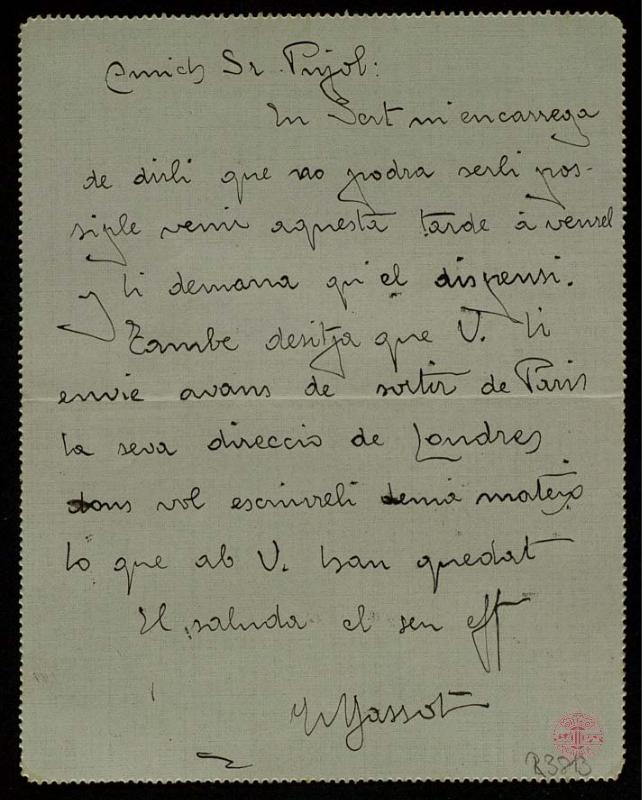 Amich Sr. Pujol:
En Sert m'encarrega
de dirli que no podra serli pos-
siple venir aquesta tarde à veurel
y li demana qu'el dispensi.
Tambe desitja que V. li
envie avans de sortir de Paris
la seva direccio de Londres
dons vol escriureli demá mateix
lo que ab V. han quedat
El saluda el seu aff
Massot
R3813